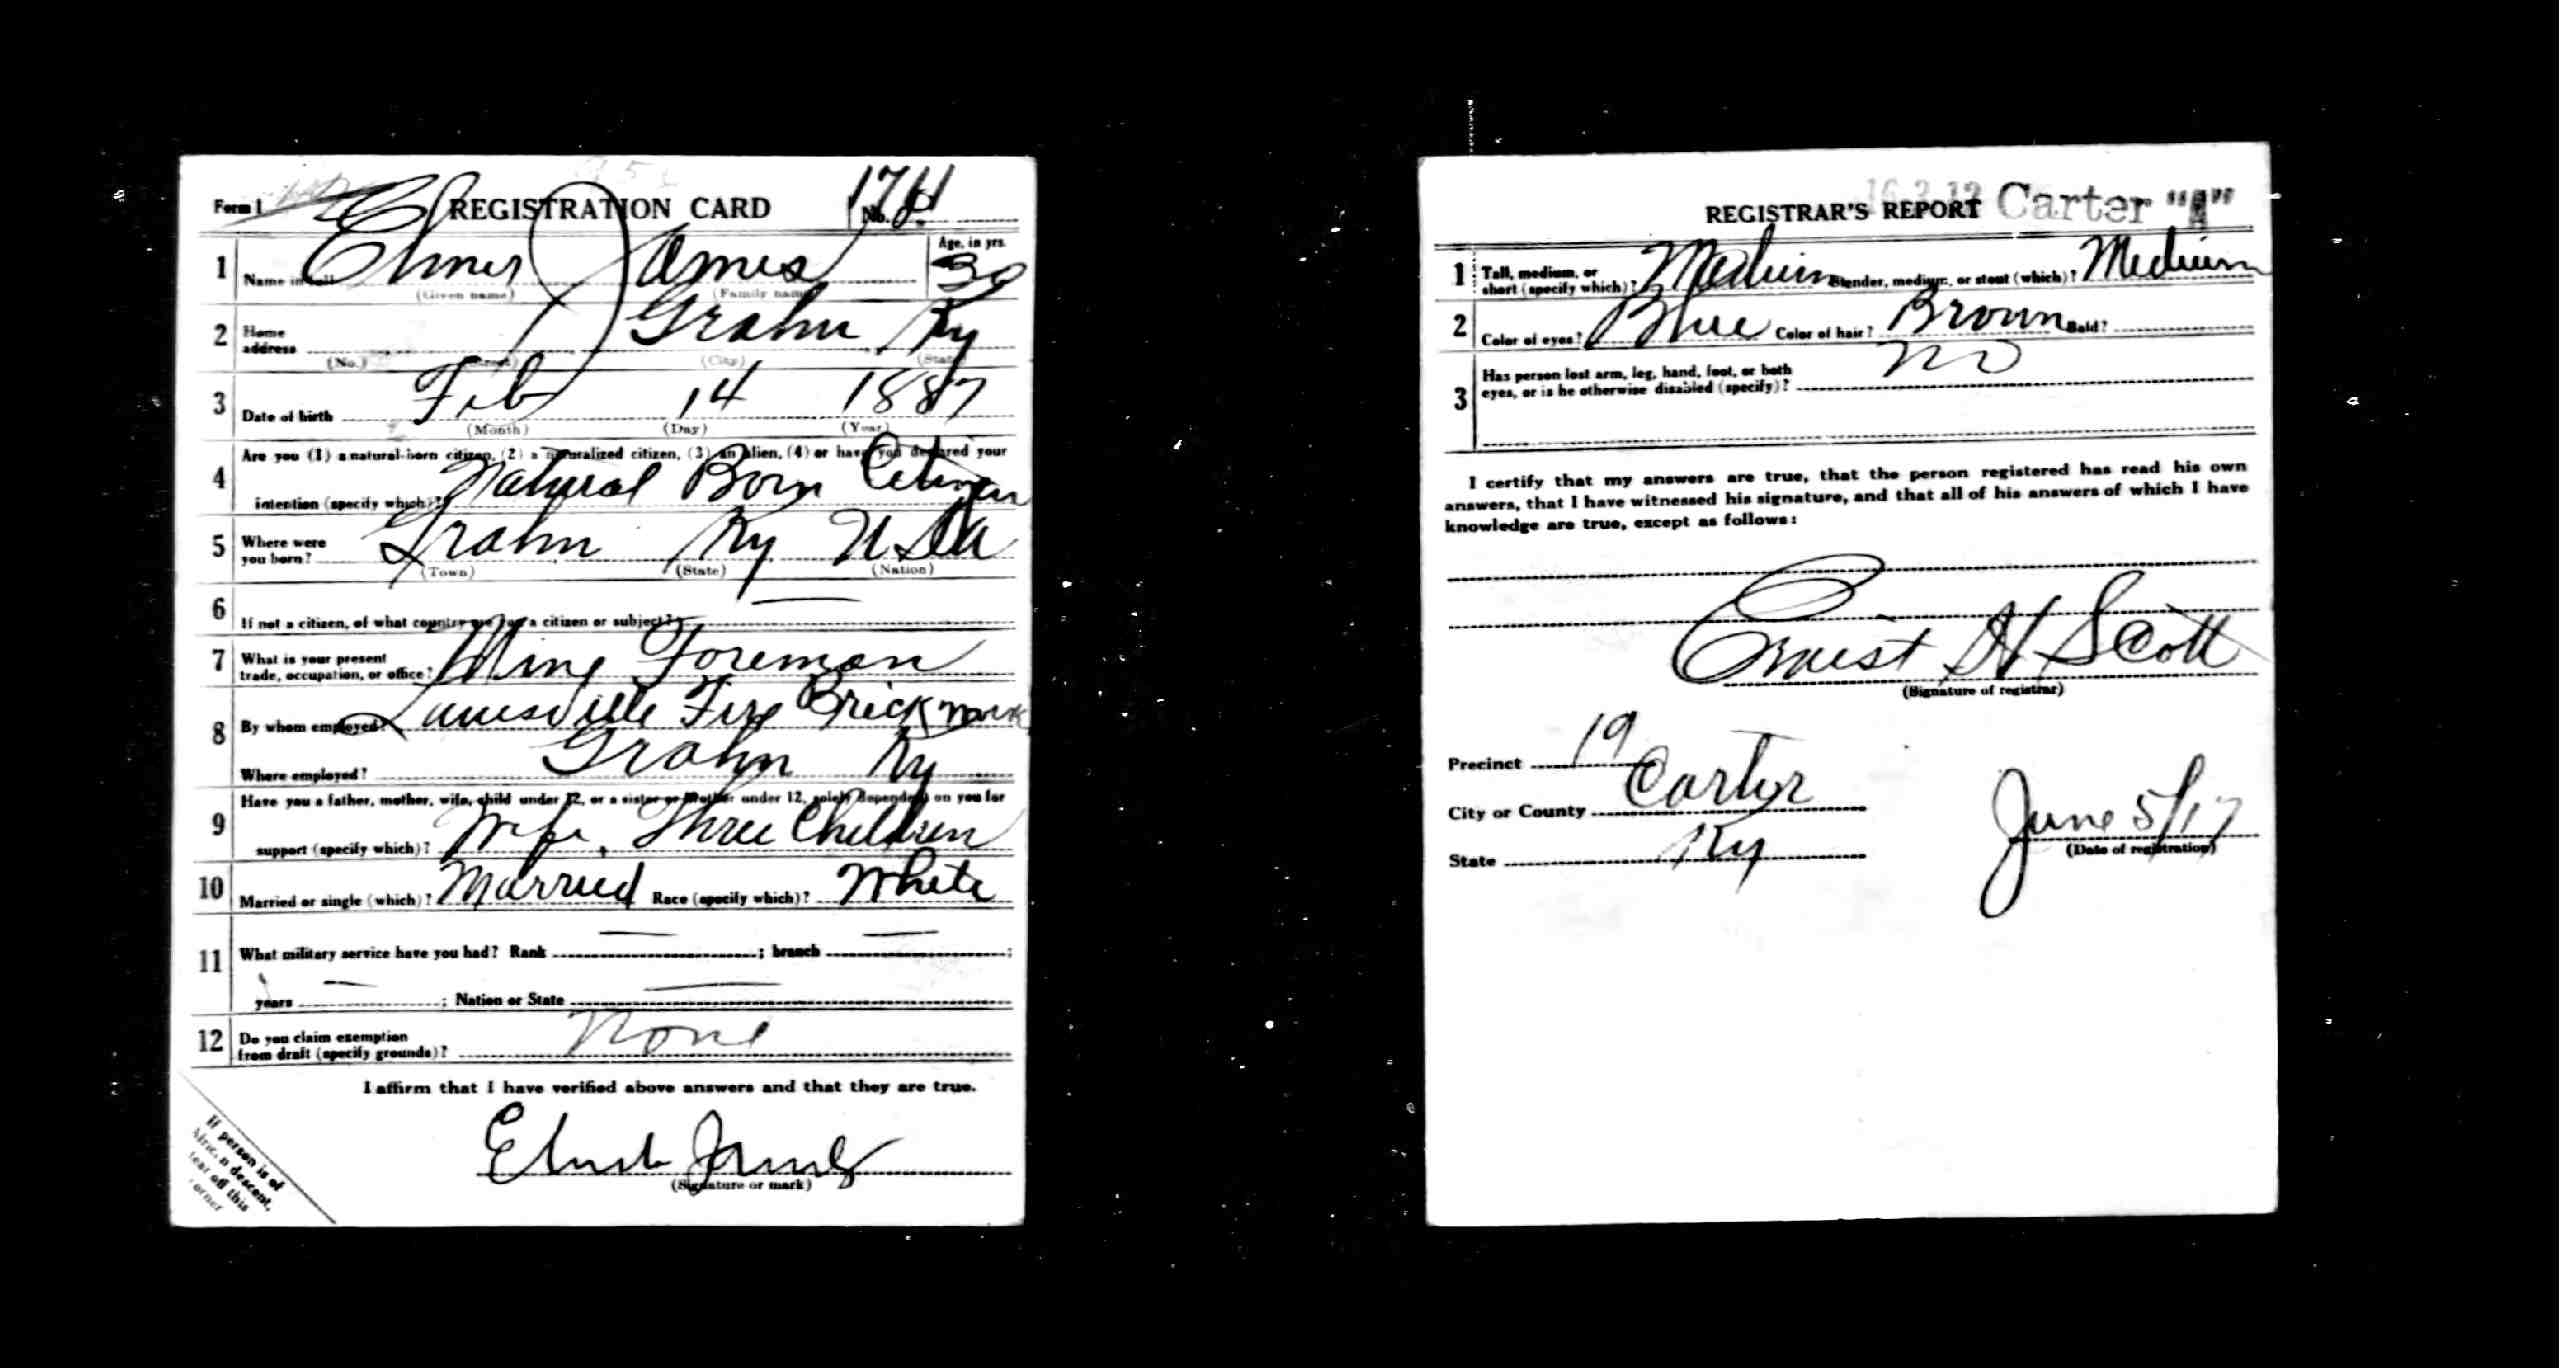 Form 1 REGISTRATION CARD No.
1 Name in full Elmer James Age, in yrs. 30
(Given name) (Family name)
2 Home address Grahn Ky
(No.) (Street) (City) (State)
3 Date of birth Feb 14 1887
(Month) (Day) (Year)
4 Are you (1) a natural-born citizen, (2) a naturalized citizen, (3) an alien, (4) or have you declared your
intention (specify which)? Natural Born Citizen
5 Where were you born? Grahn Ky USA
(Town) (State) (Nation)
6 If not a citizen, of what country are you a citizen or subject?
7 What is your present trade, occupation, or office? Mine Foreman
8 By whom employed? Louisville Fire Brick
Where employed? Grahn Ky
9 Have you a father, mother, wife, child under 12, or a sister or brother under 12, solely dependent on you for
support (specify which)? Wife, Three Children
10 Married or single (which)? Married Race (specify which)? White
11 What military service have you had? Rank ; branch ;
years ; Nation or State
12 Do you claim exemption
from draft (specify grounds)? None
I affirm that I have verified above answers and that they are true.
Elmer James
(Signature or mark)
If person is of
African descent,
tear off this
corner
REGISTRAR'S REPORT 16-3-12 Carter "A"
1 Tall, medium, or short (specify which)? Medium Slender, medium, or stout (which)? Medium
2 Color of eyes? Blue Color of hair? Brown Bald?
3 Has person lost arm, leg, hand, foot, or both
eyes, or is he otherwise disabled (specify)? No
I certify that my answers are true, that the person registered has read his own
answers, that I have witnessed his signature, and that all of his answers of which I have
knowledge are true, except as follows:
Ernest H Scott
(Signature of registrar)
Precinct 19
City or County Carter
State Ky
June 5/17
(Date of registration)